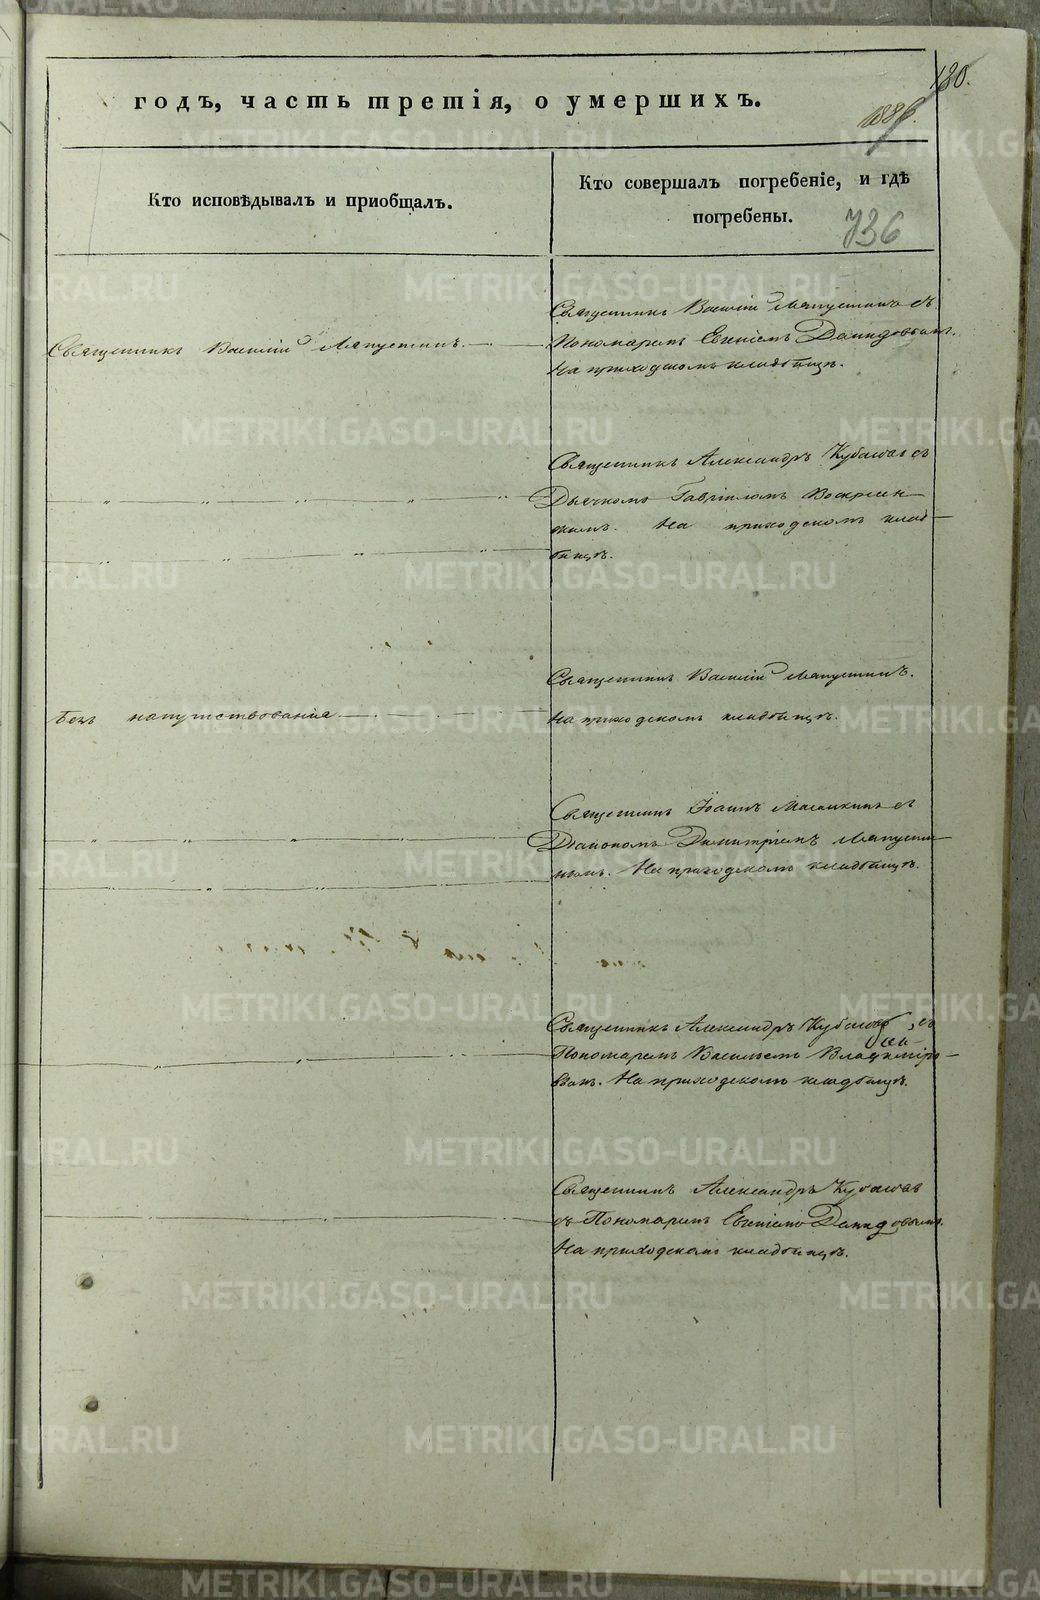 130.
годъ, часть третія, о умершихъ.
1886.
Кто исповѣдывалъ и пріобщалъ.
Кто совершалъ погребеніе, и гдѣ
погребены.
736
Священникъ Василій Мяпустинъ.
Священникъ Василій Мяпустинъ съ
Пономаремъ Евгеніемъ Давидовымъ.
На приходскомъ кладбищѣ.
Священникъ Александръ Кубасовъ съ
Дьячкомъ Гавріиломъ Воскресен-
скимъ. На приходскомъ клад-
бищѣ.
Безъ напутствованія
Священникъ Василій Мяпустинъ.
На приходскомъ кладбищѣ.
Священникъ Іоаннъ съ
Діакономъ Димитріемъ Мяпусти-
нымъ. На приходскомъ кладбищѣ.
Священникъ Александръ Кубасовъ, съ
Пономаремъ Васильемъ Владимiро-
вым. На приходскомъ кладбищѣ.
Священникъ Александръ Кубасовъ
съ Пономаремъ Евгеніемъ Давидовымъ.
На приходскомъ кладбищѣ.
METRIKI.GASO-URAL.RU